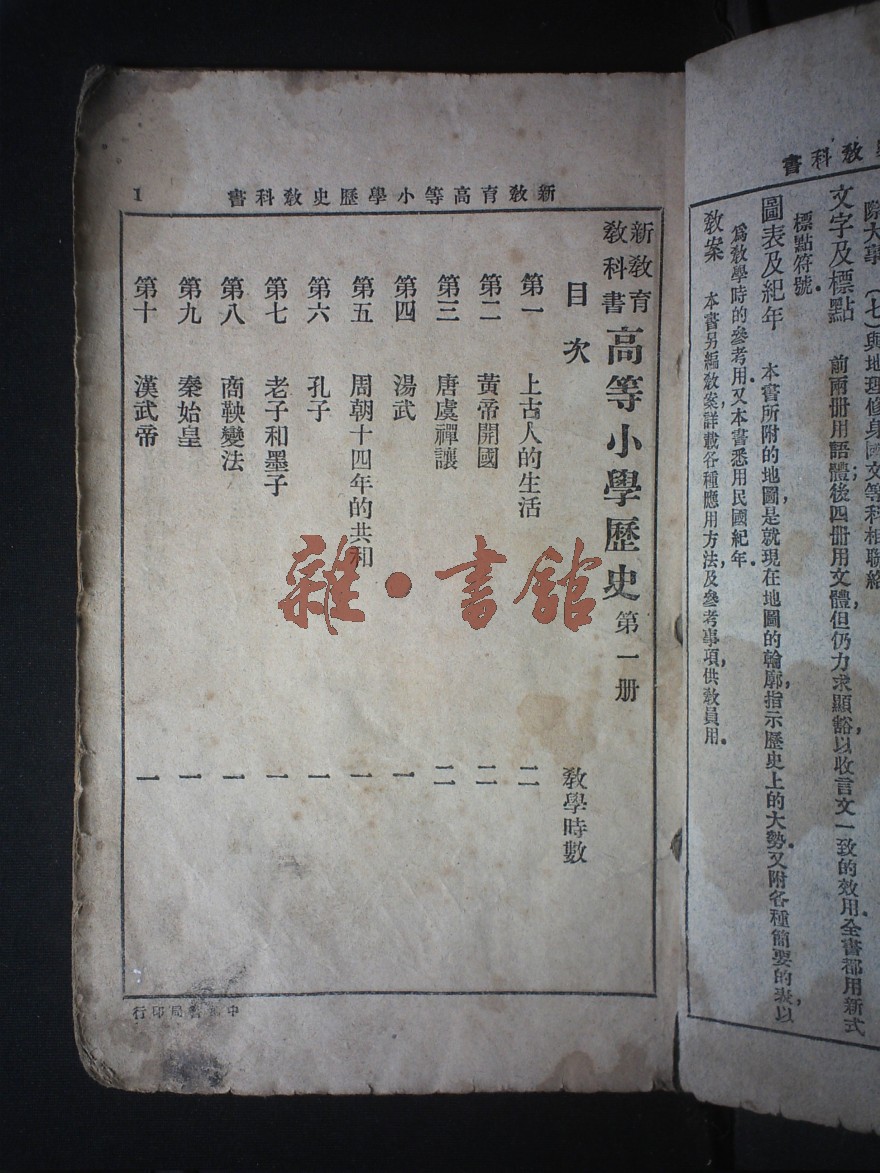 教科書
際大事 (七)與地理修身國文等科相聯絡
文字及標點 前兩冊用語體;後四冊用文體,但仍力求顯豁,以收言文一致的效用.全書都用新式
標點符號.
圖表及紀年 本書所附的地圖,是就現在地圖的輪廓,指示歷史上的大勢.又附各種簡要的表,以
爲教學時的參考用.又本書悉用民國紀年.
教案 本書另編教案,詳載各種應用方法及參考事項,供教員用.
新教育高等小學歷史教科書
1
新教育教科書 高等小學歷史 第一册
目次 教學時數
第一 上古人的生活 二
第二 黃帝開國 二
第三 唐虞禪讓 二
第四 湯武 一
第五 周朝十四年的共和 一
第六 孔子 一
第七 老子和墨子 一
第八 商鞅變法 一
第九 秦始皇 一
第十 漢武帝 一
中華書局印行
雜·書館